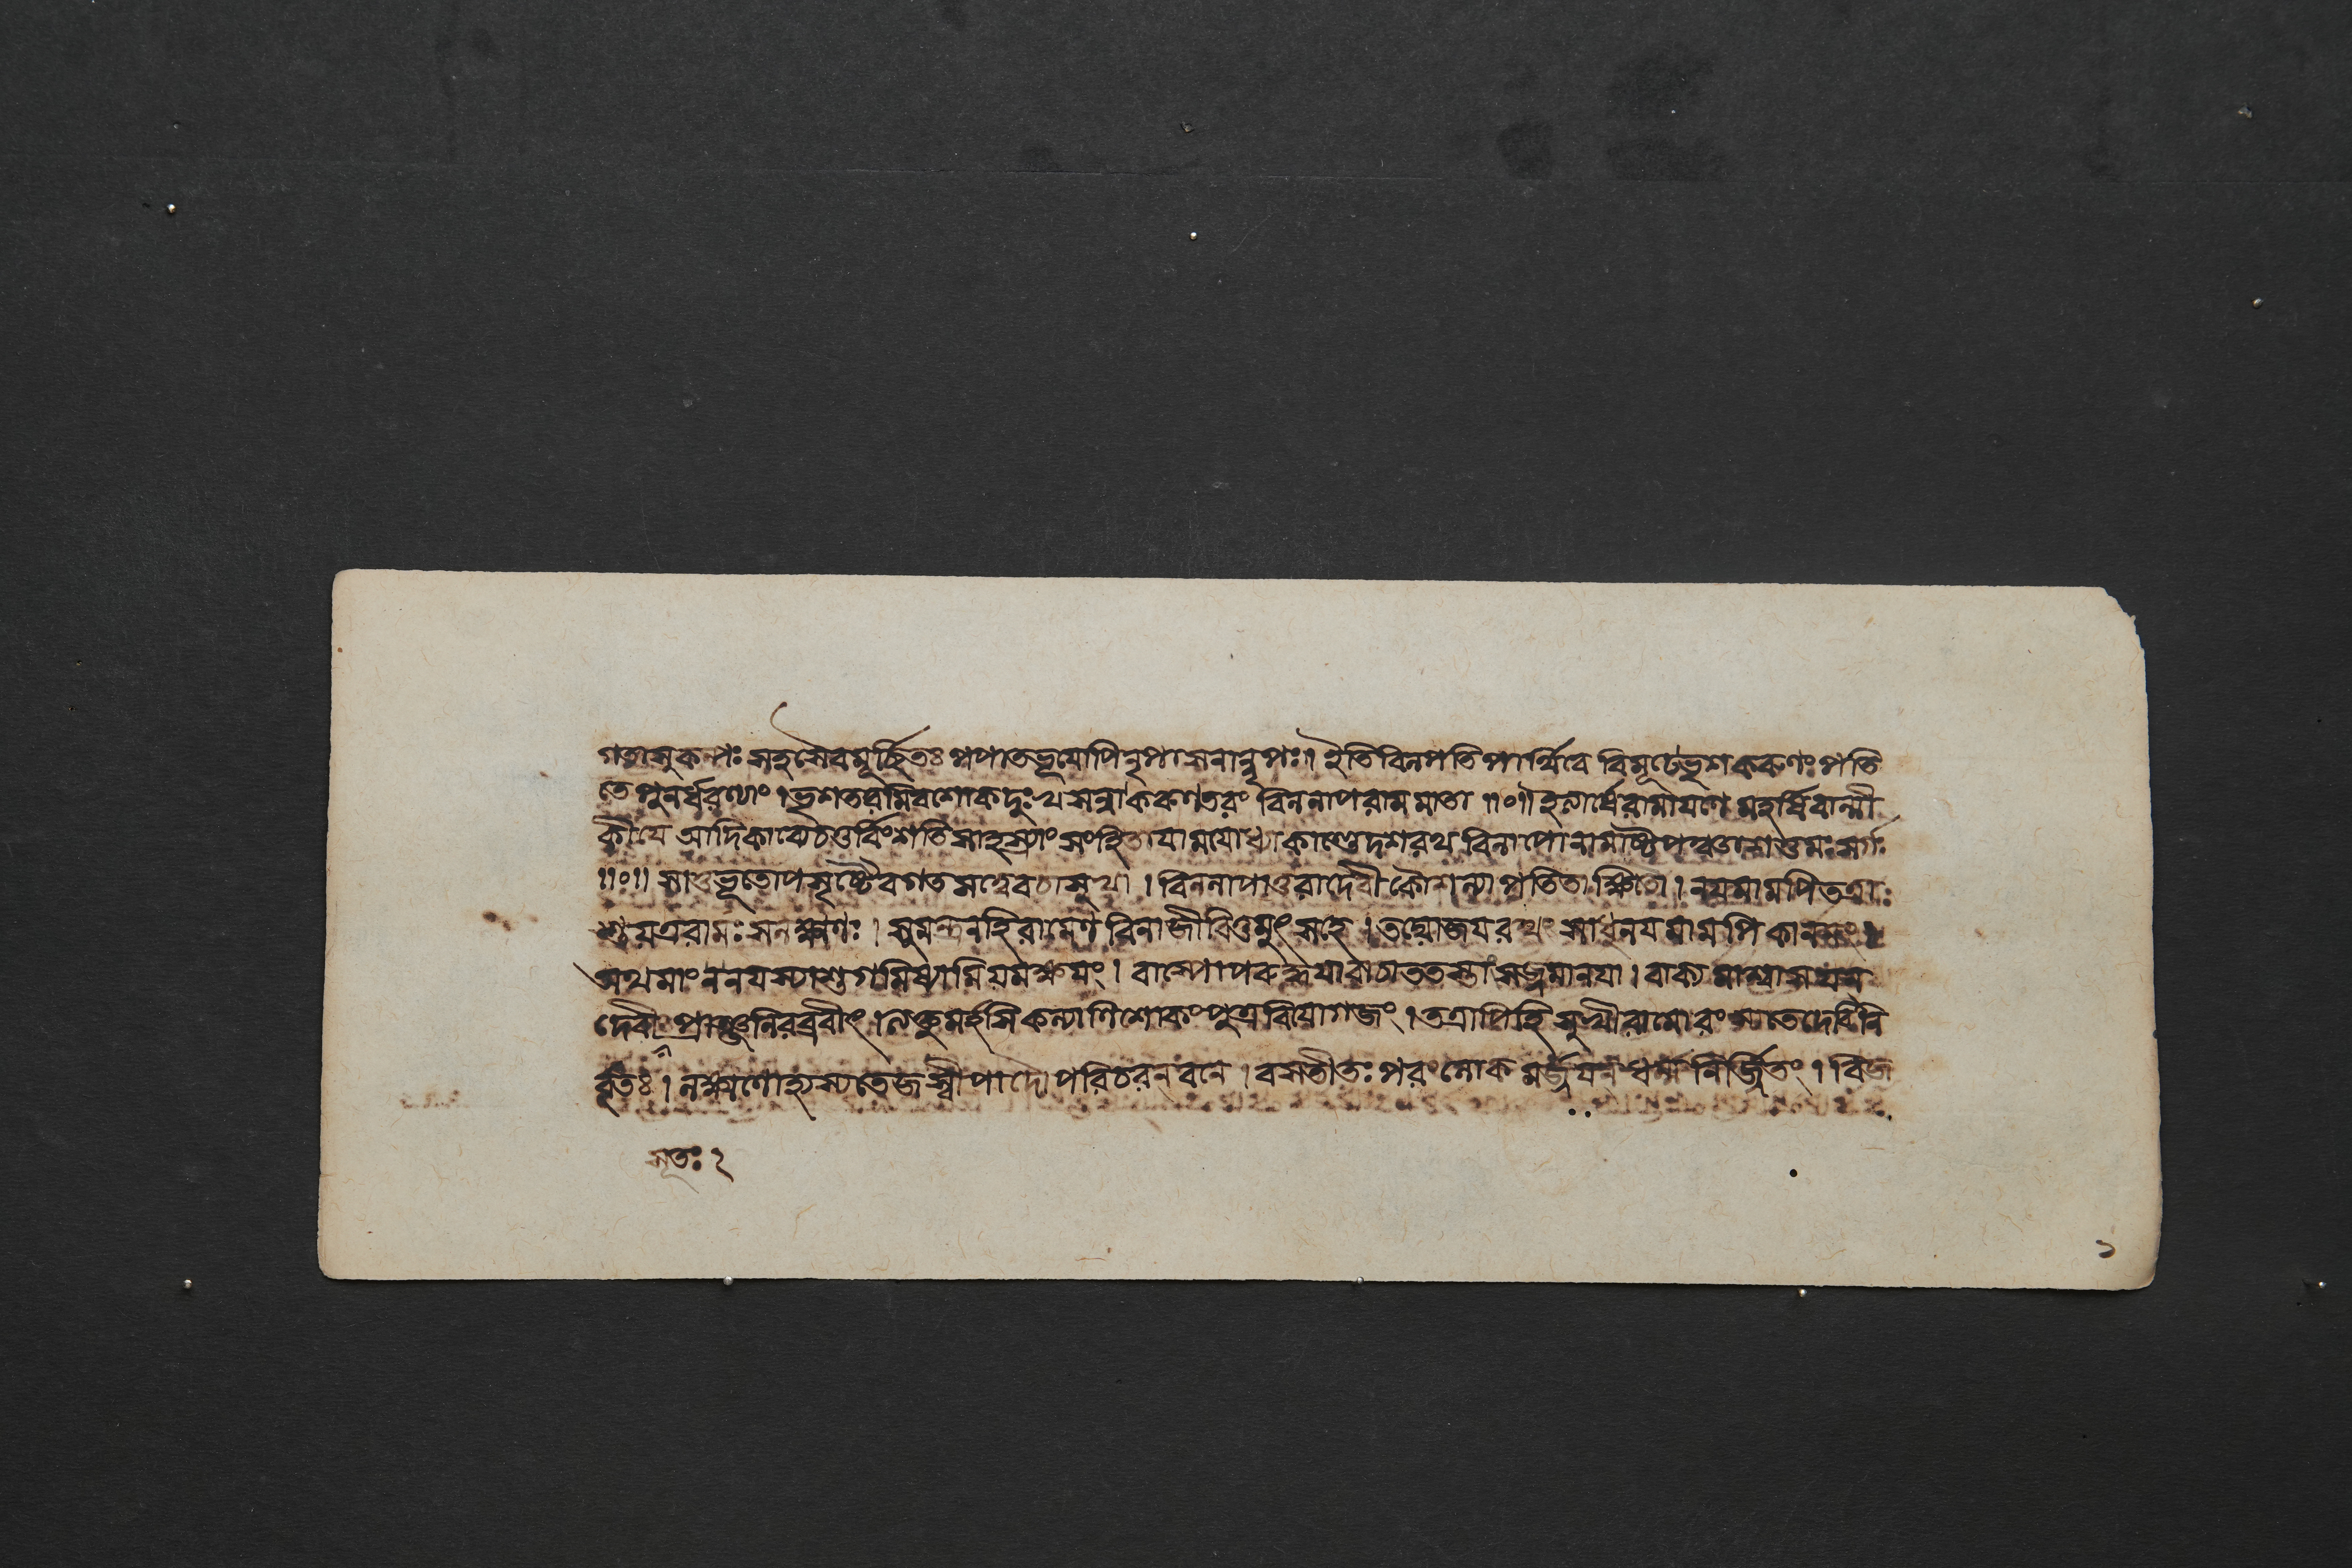 গতাসুকল্পঃ সহসৈবমূর্চ্ছিতঃ পপাতভূযোপিনৃপাসনান্নৃপঃ॥ ইতিবিলপতিপার্থিবে বিমূঢেভৃশকরুণং পতি
তে পুনর্ধরণ্যাং । ভৃশতরমিবশোকদুঃখসন্না করুণতরং বিললাপরামমাতা ॥০॥ ইত্যার্ষেরামাযণে মহর্ষিবাল্মী
কীযে আদিকাব্যেচতুর্বিংশতিসাহস্র্যাং সংহিতাযামযোধ্যাকাণ্ডেদশরথবিলাপোনামাষ্টপঞ্চাশত্তমঃ সর্গঃ
॥০॥ সাতুভূতোপসৃষ্টেবগতসত্বেবচাসুখা । বিললাপাতুরাদেবীকৌশল্যাপতিতাক্ষিতৌ । নযমামপিতত্রা
শুযত্ররামঃ সলক্ষ্মণঃ । সুমন্ত্রনহিরামেণবিনাজীবিতুমুৎসহে । তদ্যোজযরথং সাধুনযমামপিকাননং ।
অথমাংননযস্যাশুগমিষ্যামিযমক্ষযং । বাষ্পোপরুদ্ধযাবাচাততস্তাংসজ্জমানযা । বাক্যমাশ্বাসযন্
দেবীং প্রাঞ্জলিরব্রবীৎ । ত্যক্তুমর্হসিকল্যাণিশোকংপুত্রবিযোগজং । তত্রাপিহিসুখীরামোরংস্যতেদেবিনি
র্বৃতঃ । লক্ষ্মণোহ্যস্যতেজস্বীপাদৌপরিচরন্ বনে । বসতীতঃ পরংলোকমর্জযন্ ধর্ম্মনির্জিতং । বিজ
সূতঃ ২
১